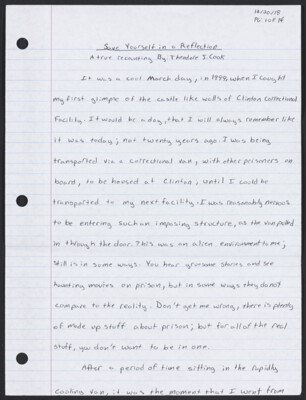 12/20/18
PG: 1 of 14
Save Yourself in a Reflection
A true recounting By: Theodore I. Cook
It was a cool March day, in 1998 when I caught
my first glimpse of the castle like walls of Clinton Correctional
Facility. It would be a day, that I will always remember like
it was today; not twenty years ago. I was being
transported via a correctional van, with other prisoners on
board, to be housed at Clinton; until I could be
transported to my next facility. I was reasonably nervous
to be entering such an imposing structure, as the van pulled
in through the door. This was an alien environment to me;
still is in some ways. You hear gruesome stories and see
haunting movies on prison, but in some ways they don't
compare to the reality. Don't get me wrong, there is plenty
of made up stuff about prison; but for all of the real
stuff, you don't want to be in one.
After a period of time sitting in the rapidly
cooling van, it was the moment that I went from